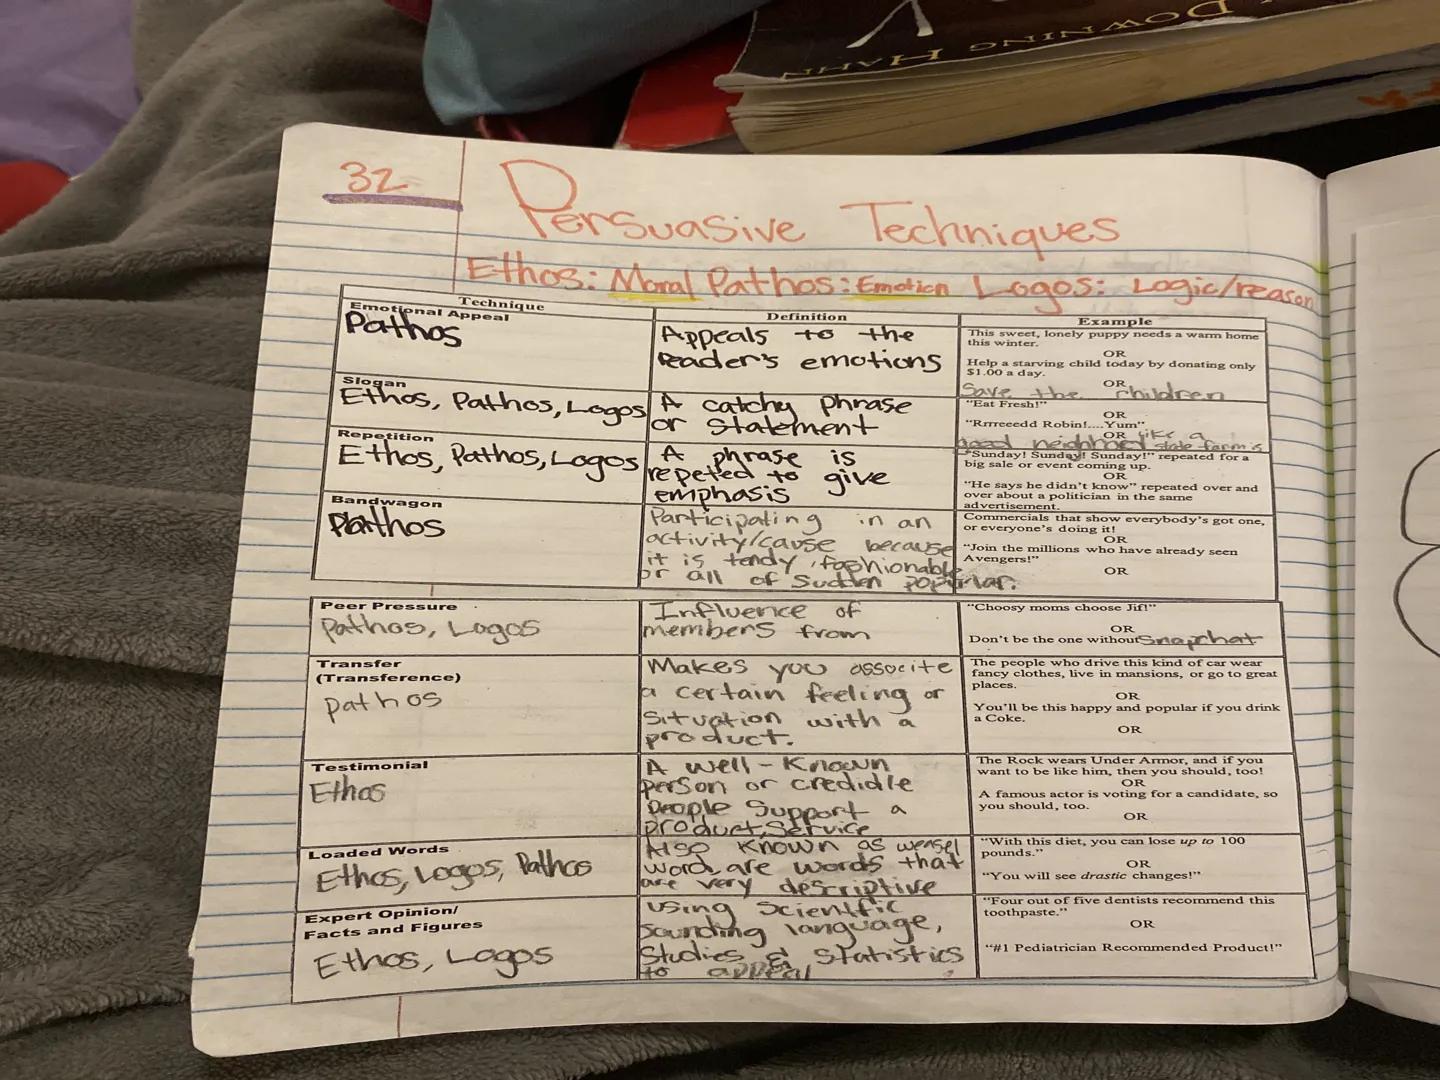 DOWNING HAHN
32
Persuasive Techniques
Ethos: Moral Pathos: Emotion Logos: Logic/reason
Technique
Definition
Example
Emotional Appeal
Pathos
Appeals to the
reader's emotions
This sweet, lonely puppy needs a warm home
this winter.
OR
Help a starving child today by donating only
$1.00 a day.
OR
Save the children
Slogan
Ethos, Pathos, Logos
A catchy phrase
or statement
"Eat Fresh!"
OR
"Rrrreeedd Robin!....Yum"
OR like a
good neighbor state farm is
Repetition
Ethos, Pathos, Logos
A phrase is
repeted to give
emphasis
"Sunday! Sunday! Sunday!" repeated for a
big sale or event coming up.
OR
"He says he didn't know" repeated over and
over about a politician in the same
advertisement.
Bandwagon
Pathos
Participating in an
activity/cause because
it is tendy, fashionable
or all of sudden popular.
Commercials that show everybody's got one,
or everyone's doing it!
OR
"Join the millions who have already seen
Avengers!"
OR
Peer Pressure
Pathos, Logos
Influence of
members from
"Choosy moms choose Jif!"
OR
Don't be the one without Snapchat
Transfer
(Transference)
Pathos
Makes you associte
a certain feeling or
situation with a
product.
The people who drive this kind of car wear
fancy clothes, live in mansions, or go to great
places.
OR
You'll be this happy and popular if you drink
a Coke.
OR
Testimonial
Ethos
A well-known
person or credidle
people support a
product, service
The Rock wears Under Armor, and if you
want to be like him, then you should, too!
OR
A famous actor is voting for a candidate, so
you should, too.
OR
Loaded Words
Ethos, Logos, Pathos
Also known as weasel
word, are words that
are very descriptive
"With this diet, you can lose up to 100
pounds."
OR
"You will see drastic changes!"
Expert Opinion/
Facts and Figures
Ethos, Logos
using scientific
sounding language,
studies & statistics
to appeal
"Four out of five dentists recommend this
toothpaste."
OR
"#1 Pediatrician Recommended Product!"